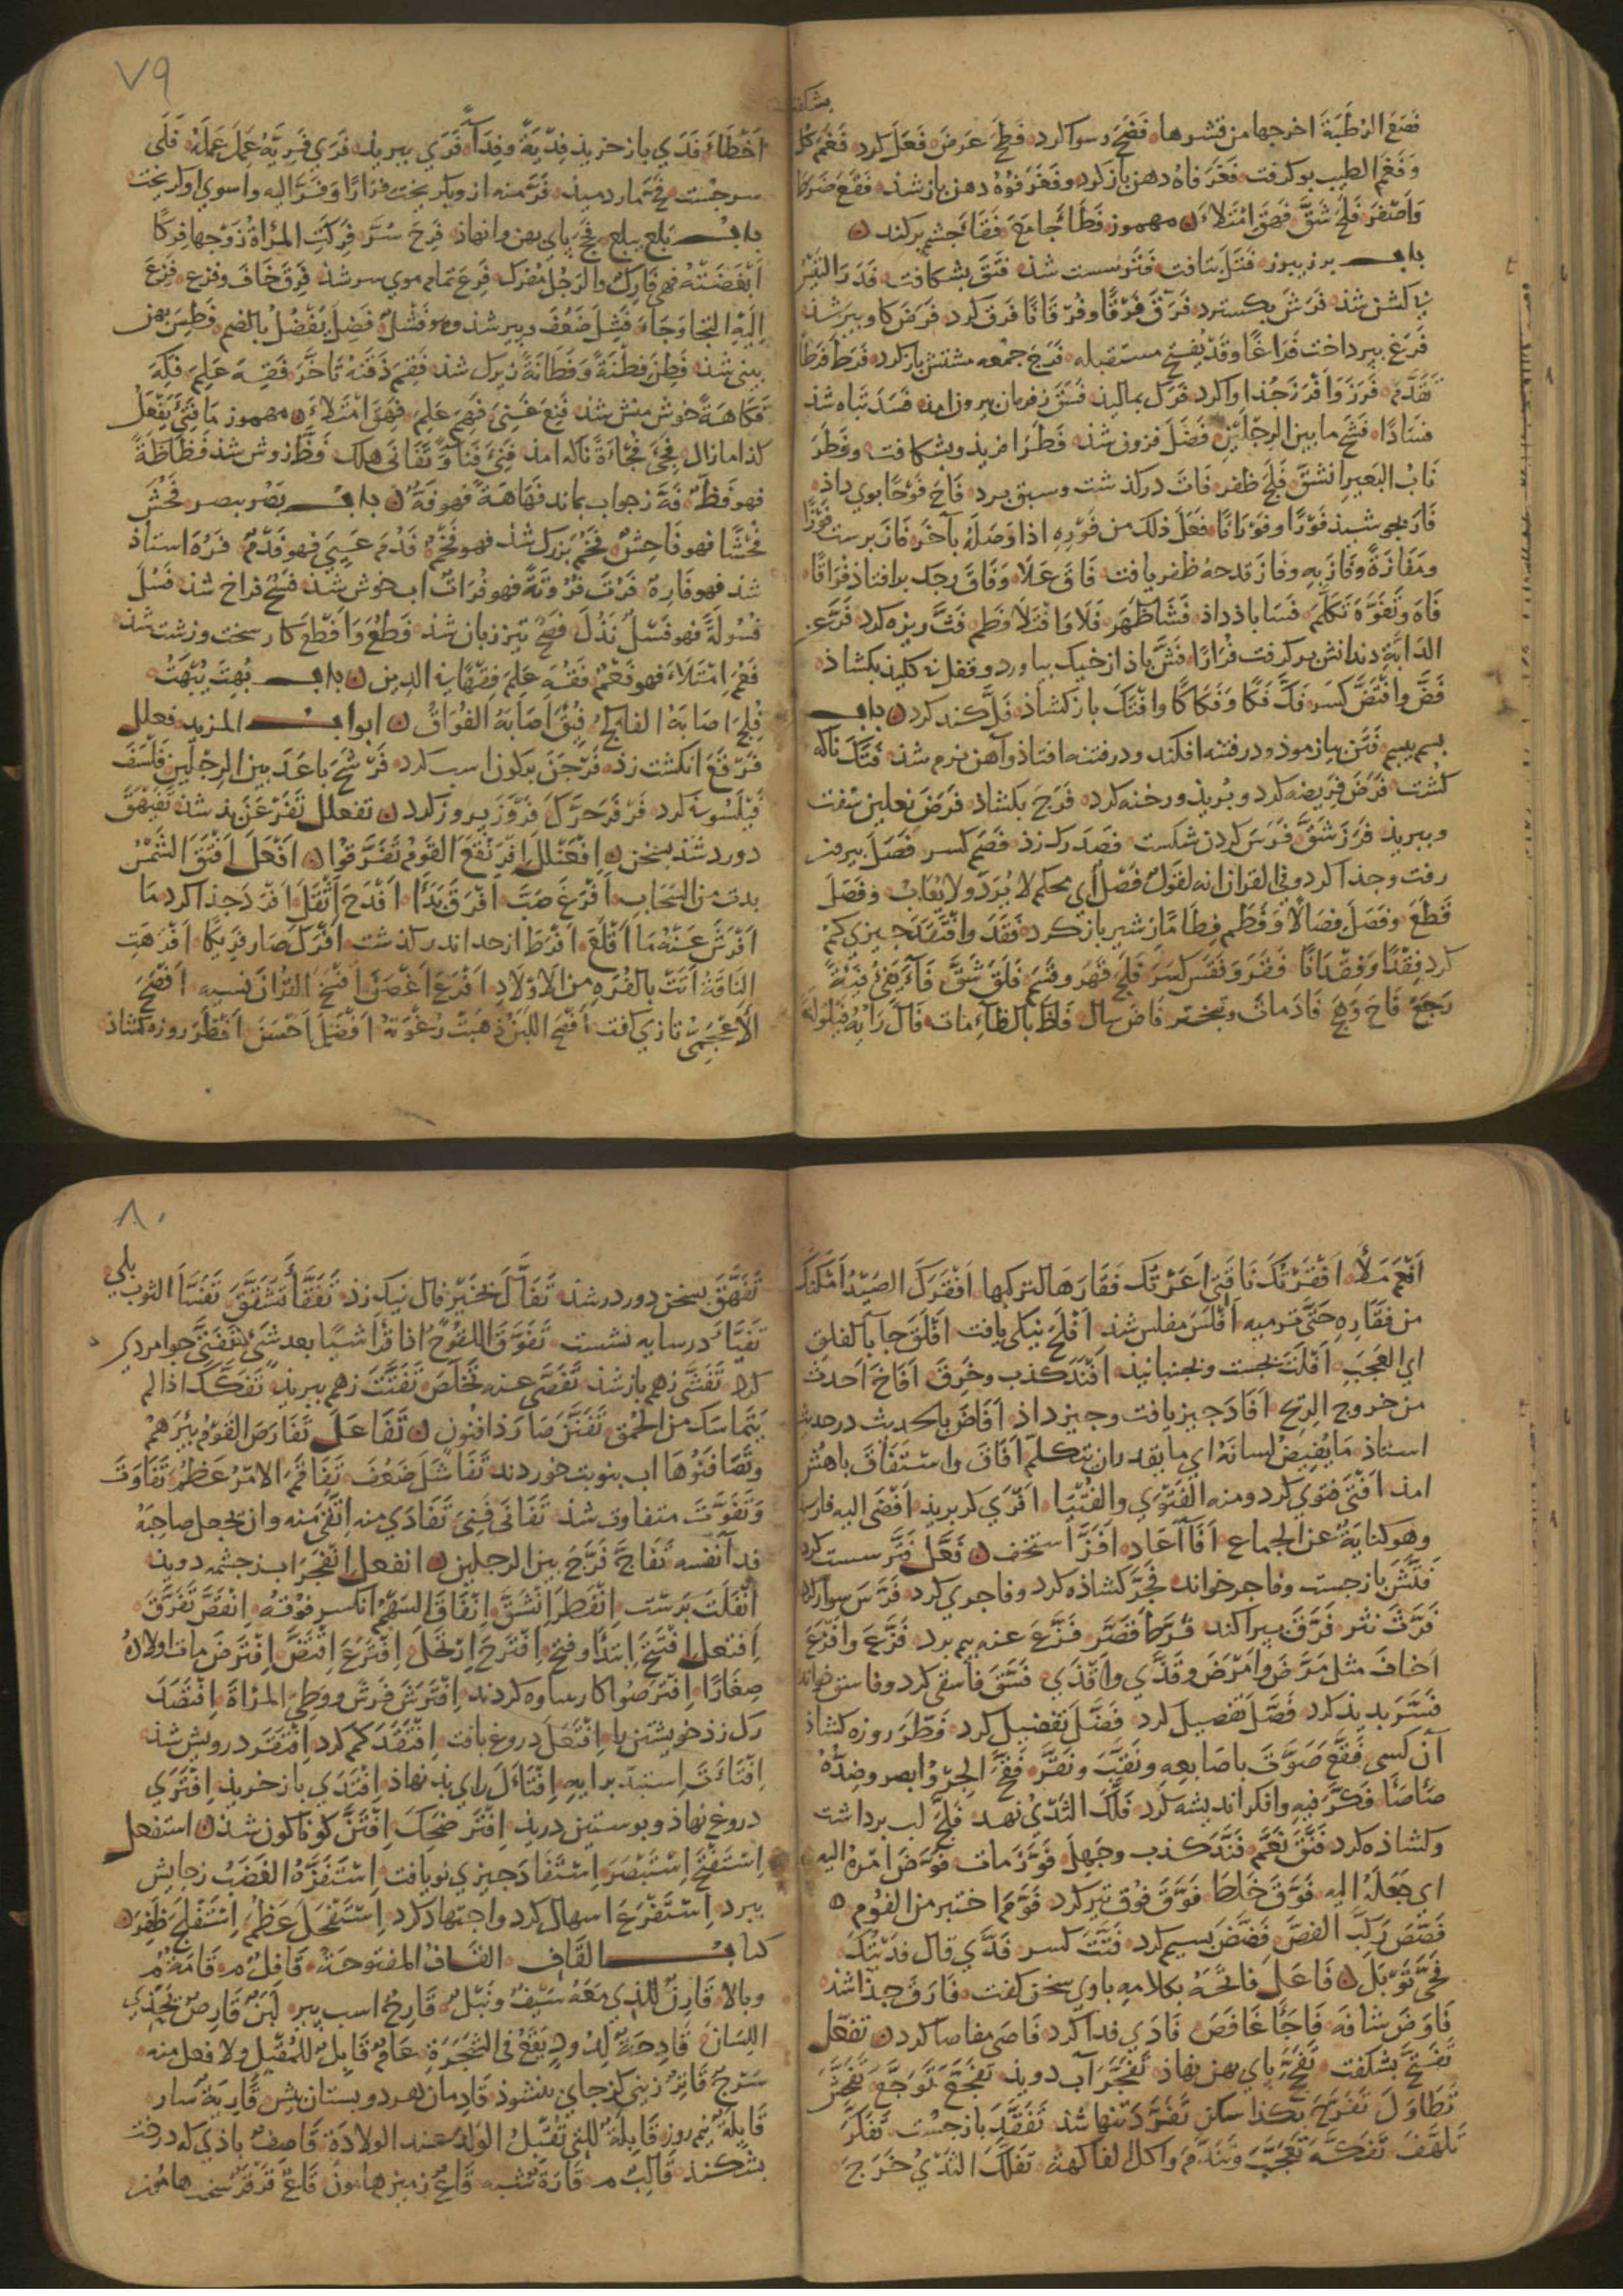 فَصَعَ الرُطَبَةَ اخرجها من قشرها فَضَحَ رسوا كرد فَطَحَ عَرضَ فَعَلَ كرد فَغَمَ
وَفَغِم الطيب بو كرفت فَغَرَ فَاهُ دهن باز كرد وفَغَرَ فُوهُ دهن باز شذ فَقَعَ ضَرَطَ
وَاصْفَرَ فَلَحَ شَقَّ فَهَقَ امْتَلاءَ مهموز فَطَأ جَامَعَ فَقَأ جشم بركند
باب برز يبرز فَتَلَ بتافت فَتَرَ سست شذ فَتَقَ بشكافت فَدَرَ
كشن شذ فَرَشَ بكسترد فَرَقَ فَرْقًا وفُرْقَانًا فرق كرد فَرَضَ كاو بير شذ
فَرَغَ ببرداخت فَرَاغًا وقد يفتح مستقبله فَرَجَ جمعه مشتش باز كرد فَرَطَ فَرَطًا
تَقَدَّمَ فَرَزَ وَاَفْرَزَ جُذا وا كرد فَرَكَ بماليذ فَسَقَ زفرمان بيرون امذ فَسَدَ تباه شذ
فسَادًا فَشَحَ ما بين الرجلين فَضَلَ فزون شذ فَطَرَ افريذ وبشكافت وفَطَرَ
نَابُ البَعير انشَقَّ فَلَجَ ظفر فَاتَ دركذشت وسبق برد فَاحَ فَوْحًا بوي داذ
فَارَ بجوشيذ فَوْرًا وفَوَرَانًا فعَلَ ذلك من فَوْرِهِ اذا وَصَلَهُ بآخَرَ فَازَ برست فَوْزًا
ومَفَازَةً وفَازَ بِهِ وفاز قدحه ظفر يافت فَاقَ عَلَا وَفَاقَ رجك برافتاذ فُوَاقًا
فَاهَ وتَفَوَّهَ تَكَلَّمَ فَسَا باذ داذ فَشَا ظَهَرَ فَلَا وَافْتَلَا فَطِم فَتَّ ريزه كرد فَرَّ عن
الدابة دندانش بركرفت فُرَارًا فَشَّ باذ از خيك بياورد وقفل بى كليذ بكشاذ
فَضَّ وافْتَضَّ كسر فَكَّ فَكًّا وَفَكَاكًا وافْتَكَّ باز كشاذ فَلَّ كند كرد باب
بسم يبسم فَتَنَ بيازموذ ودر فتنه افكند ودر فتنه افتاذ وآهن نرم شذ فَتَكَ ناكه
كشت فَرَضَ فريضه كرد وبُريذ ورخنه كرد فَرَجَ بكشاذ فَرَصَ نعلين سفت
وببريذ فَرَزَ شَقَّ فَرَسَ كردن شكست فَصَدَ رك زذ فَصَمَ كسر فَصَلَ بيرون
رفت وجذا كرد وفي القران انه لقول فَصْل اي محكم لا يُرَدُّ ولا يُعَابُ وفَصَلَ
قَطَعَ وفَصَلَ فِصَالًا وَفَطَمَ فِطَامًا زشير باز كرد فَقَدَ وافْتَقَدَ جيزي كم
كرد فِقْدًا وفِقْدَانًا فَقَرَ وَفَقَسَ كسَرَ فَلَجَ قَهَرَ وقسَم فَلَقَ شَقَّ فَآءَ يَفِئُ فَيْئَةً
رَجَعَ فَاحَ وَهَجَ فَادَ مات وتبختر فَاضَ سال فَاظَ بالظاء مات فَالَ رَايُهُ فَيْلُولَةً
٧٩
اَخْطَاَءَ فَدَي باز خريذ فِدْيَةً وفِدَآءً فَرَي ببريذ فَرَي فَرِيَّهُ عَمِلَ عَمَلَهُ فَلَى
سر جست فَرَّ منه ازو بكريخت فِرَارًا وَفَرَّ اليه وا سوي او كريخت
باب بَلع يبلع فحَج پاي پهن وانهاذ فَرِحَ سُرَّ فَرِكَتِ المرْاَةُ زَوْجها فِركًا
اَبْغَضَتْهُ فهى فَارِكٌ والرَجُل مُفَرَك فَرِعَ تمام موي سر شذ فَرِقَ خَافَ وفزِع فَزِعَ
اِلَيْهِ التجا وَجَاءَ فَشِلَ ضَعُفَ وبير شذ وهو فَشْلٌ فَضِلَ يَفْضُلُ بالضم فَطِسَ پهن
بيني شذ فَطِنَ فِطْنَةً وفَطَانَةً زيرك شذ فَقِمَ ذَقَنُه تَاخَّرَ فَقِهَ عَلِمَ فَكِهَ
فَكَاهَةً خوش منش شذ فَنِعَ غَنِيَ فَهِمَ عَلِمَ فَهِقَ امْتَلاءَ مهموز مَا فَتِئَ يَفْعَلُ
كذا ما زال فَجِئَ فُجَاءَةً ناكه امذ فَنِيَ فَنَاءً وَتَفَانَى هلك فَظَّ زوش شذ فَظَاظَةً
فهو فَظٌّ فَهَّ زجواب بماند فَهَاهَةً فهو فَهٌّ باب بَصُر يبصر فَحُشَ
فُحْشًا فهو فَاحِشٌ فَخُمَ بزرك شذ فهو فَخْمٌ فَدُمَ عَيِيَ فهو فَدْمٌ فَرُهَ استاذ
شذ فهو فَارِهٌ فَرُتَ فُرُوتَةً فهو فُرَاتٌ اب خوش شذ فَسُحَ فراخ شذ فَسُلَ
فُسُولَةً فهو فَسْلٌ نَذُلَ فَصُحَ تيز زبان شذ فَظُعَ وَاَفْظَعَ كار سخت وزشت شذ
فَعُمَ اِمْتَلاَءَ فهو فَعْمٌ فَقُهَ عَلِمَ فِقْهًا في الدين باب بُهِتَ يُبْهَتُ
فُلِجَ اصَابَهُ الفَالِجُ فِيقَ اَصَابَهُ الفُوَاقُ ابواب المزيد فعلل
فَرْقَعَ انكشت زذ فَرْجَنَ بركون اسب كرد فَرْشَحَ باعَدَ بين الرجلين فَلْسَفَ
فَيلَسوفي كرد فَرْفَرَ حَرَّكَ فَرْوَزَ بيروز كرد تفعلل تَفَرْعَنَ بذ شذ تَفَيْهَقَ
دورد شذ بسخن اِفْعَنْلَلَ اِفْرَنْقَعَ القَوْمُ تَفَرَّقُوا اَفْعَلَ اَفْتَقَ الشَّمْسُ
بدت من السَحَابِ اَفْرَغَ صَبَّ اَفْرَقَ بَدَاَ اَفْدَحَ اَثْقَلَ اَفْرَدَ جذا كرد مَا
اَفْرَشَ عَنْهُ مَا اَقْلَعَ اَفْرَطَ از حد اندر كذشت اَفْرَكَ صَارَ فَرِيكًا اَفْرَهَتِ
النَاقَةُ اَتَتْ بالفُرَّهِ من الاَوْلَادِ اَفْرَعَ اَغْصَنَ اَفْسَخَ القرانَ نسيه اَفْصَحَ
الاَعْجَمِيّ تازي كفت اَفْصَحَ اللَبَنُ ذهَبَتْ رُغْوَتُهُ اَفْضَلَ اَحْسَنَ اَفْطَرَ روزه كشاذ
اَفْعَمَ مَلَأَ اَفْقَرْتُكَ نَاقَتِي اَعَرْتُكَ فَقَارَهَا لتركبها اَفْقَرَكَ الصَيْدُ اَمْكَنَكَ
من فَقَارِهِ حَتَّى ترميه اَفْلَسَ مفلس شذ اَفْلَحَ نيكي يافت اَفْلَقَ جآءَ بالفِلْقِ
اي العَجَبِ اَفْلَتَ بجست وبجهانيذ اَفْنَدَ كذب وخَرِفَ اَفَاخَ اَحدَثَ
من خروج الريح اَفَادَ جيز يافت وجيز داذ اَفَاضَ بالحديث در حديث
استاذ مَا يُفِيضُ لسانَهُ اي ما يقدر ان يتكلّم اَفَاقَ واسْتَفَاقَ باهُش
امذ اَفْتَى فتوى كرد ومنه الفَتْوَي والفُتْيَا اَفْرَي كر بريذ اَفْضَى اليه فارسيذ
وهو كنايةٌ عن الجماع اَفَاَءَ اَعَادَ اَفَزَّ اسْتَخَفَ فَعَّلَ فَتَّرَ سست كرد
فَتَّشَ باز جست وفاجر خواند فَجَّرَ كشاذه كرد وفاجري كرد فَرَّسَ سوار كرد
فَرَّثَ نثر فَرَّقَ بپراكند فَرَّطَ قَصَّر فَزَّعَ عنه بيم ببرد فَزَّعَ وافْزَعَ
اَخافَ مثل مَرَّضَ وَاَمْرَضَ وقَذَّي وَاَقْذَي فَسَّقَ فاسقي كرد وفاسق خواند
فَسَّرَ بديد كرد فَصَّلَ تفصيل كرد فَضَّلَ تفضيل كرد فَطَّرَ روزه كشاذ
آن كسى فَقَّعَ صَوَّتَ باصَابعِهِ ونَقَّبَ ونَقَّرَ فَقَّحَ الجِرْوُ ابصر وضِدُّهُ
صَاْصَاَ فَكَّرَ فيهِ وافكر انديشه كرد فَلَّكَ الثَدْيُ نَهد فَلَّجَ لب برداشت
وكشاذه كرد فَنَّقَ نَعَّمَ فَنَّدَ كذب وجَهِلَ فَوَّزَ مات فَوَّضَ امْرَهُ اليه
اي جَعَلَهُ اليه فَوَّقَ خَلَطَ فَوَّقَ فُوق تير كرد فَوَّمَ اختبز من الفُوم
فَصَّصَ رَكَّبَ الفصَّ فَضَّضَ بسيم كرد فَتَّتَ كسر فَدَّي قال فَدَيْتُكَ
فَحَّى تَوْبَلَ فَاعَلَ فَاتَحَهُ بكلامه باوي سخن كفت فَارَقَ جذا شذ
فَاوَضَ شَافَهَ فَاجَأَ غَافَصَ فَادَي فدا كرد فَاصَى مفاصا كرد تفعّل
تَفَتَّحَ بشكفت تَفَحَّجَ پاي پهن نهاذ تَفَجَّرَ آب دويذ تَفَجَّعَ تَوَجَّعَ
تَطَاوَلَ تَفَرَّجَ تَفَرَّدَ تنها شذ تَفَقَّدَ باز جُست تَفَكَّرَ
تَلَهَّفَ تَفَكَّهَ تَعَجَّبَ وتَنَدَّمَ واكل الفاكهة تفَلَّكَ الثَدْيُ خَرَجَ
٨٠
تَفَهَّقَ بسخن دورد شذ تَفَأَّلَ بخير فال نيك زذ تَفَقَّأَ تَشَقَّقَ تَفَسَّأَ الثوب بلي
تَفَيَّأَ در سايه نشست تَفَوَّقَ اللَّقُوحَ اذا قرا شيئًا بعد شئ تَفَتَّى جوامردي
كرد تَفَشَّى زهم باز شذ تَفَصَّى عنه تَخَلَّصَ تَفَتَّتَ زهم ببريذ تَفَكَّكَ اذا لم
يَتَمَاسَك من الحُمق تَفَنَّنَ صَارَ ذا فنون تَفَاعَلَ تَفَارَصَ القَوْمُ بِئرَهُمْ
وتَصَافَنُوهَا اب بنوبت خوردند تَفَاشَلَ ضَعُفَ تَفَاقَمَ الامرُ عَظُمَ تَفَاوَتَ
وَتَفَوَّتَ متفاوت شذ تَفَانَى فَنِيَ تَفَادَي منه اِتَّقَى منه وان يجعل صاحِبَهُ
فدآءَ نفسه تَفَاجَّ فَرَّجَ بين الرجلين انفعل اِنْفَجَرَ اب زجشمه دويذ
اِنْفَلَتَ برَست اِنْفَطَرَ اِنْشَقَّ اِنْفَاقَ السَهْمُ انكسر فُوْقُهُ اِنْفَضَّ تَفَرَّقَ
اِفتعل اِفْتَتَحَ اِبْتَدَأ وفتح اِفْتَرَحَ اِرْتَجَلَ اِفْتَرَعَ اِفْتَضَّ اِفْتَرَضَ مات اولادُهُ
صِغَارًا اِفْتَرَصُوا كار بساوه كردند اِفْتَرَشَ فَرَشَ ووَطِئَ المراَةَ اِفْتَصَدَ
رك زذ خويشتن را اِفْتَعَلَ دروغ بافت اِفْتَقَدَ كم كرد اِفْتَقَرَ درويش شذ
اِفْتَاَتَ اِستبدّ برايهِ اِفْتَاَلَ راي بذ نهاذ اِفْتَدَي باز خريذ اِفْتَرَي
دروغ نهاذ وبوستين دريذ اِفْتَرَّ ضَحِكَ اِفْتَنَّ كوناكون شذ استفعل
اِسْتَفْتَحَ اِسْتَبْصَرَ اِسْتَفَادَ جيزي نو يافت اِسْتَفَزَّهُ الغَضَبُ زجايش
ببرد اِسْتَفْرَغَ اسهال كرد واجتهاد كرد اِسْتَفْحَلَ عَظُمَ اِسْتَفْلَحَ ظَفِرَ
كتاب القَاف القَافُ المفتوحَة قَافِلٌ م قَامَةٌ م
وبالا قَارِنٌ للذي مَعَهُ سَيْفٌ ونَبْلٌ قَارِحٌ اسب پير لَبَنٌ قَارِصٌ يَحْذي
اللِسَانَ قَادِحَةٌ لِدُودٍ يَقَعُ في الشَجَرَةِ عَامٌ قَابِلٌ للمُقْبِلِ ولا فعل منه
سَرْجٌ قَاتِرٌ زيني كزجاي بنشوذ قَادِمان پهردو پستان پيش قَارِيَةٌ سار
قَايِلَةٌ نيم روز قَابِلَةٌ للتي تَقْبَلُ الوَلَدَ عند الولادة قَاصِفٌ باذي كه درخت
بشكند قَالِبٌ م قَارَةٌ شبه قَاعٌ زمين هامون قَاعٌ قَرْقَرٌ سخت هامون